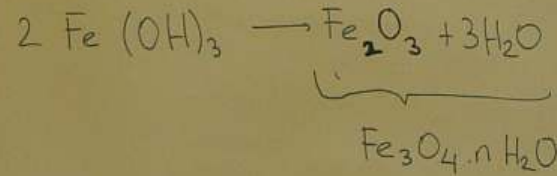 2 Fe (OH)₃ → Fe₂O₃ + 3H₂O
Fe₃O₄.n H₂O